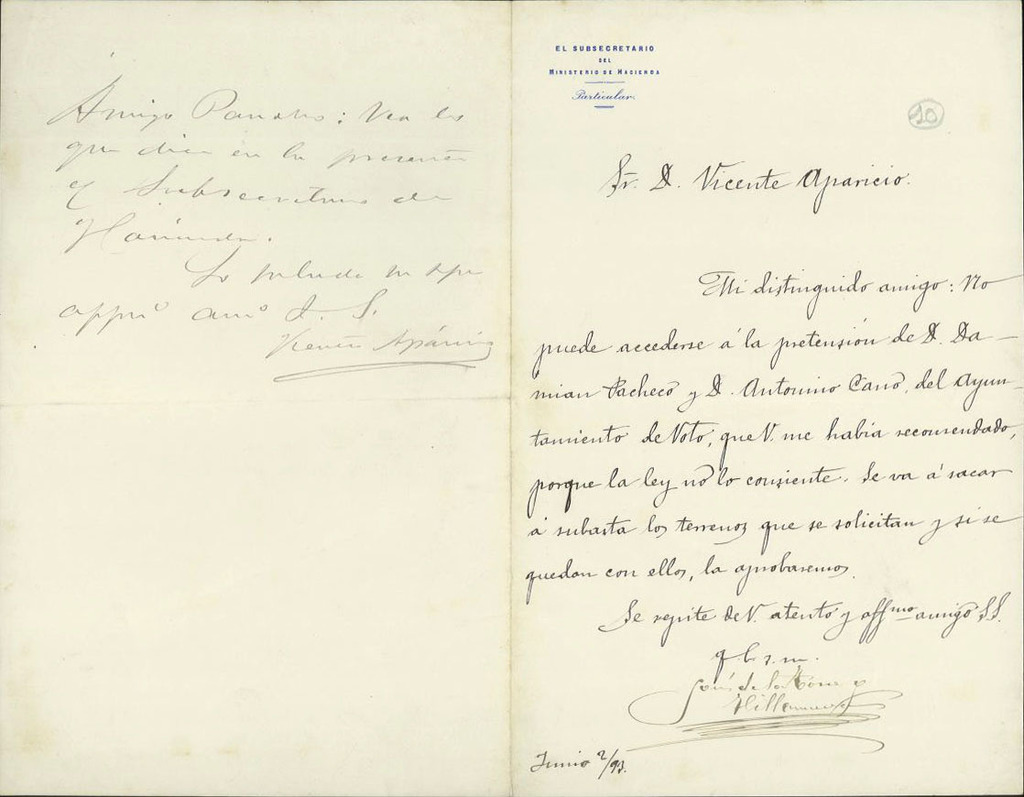 Amigo Pancho: Vea lo
que dice en la presente
el Subsecretario de
Hacienda.
Le saluda su
affmo amo S. S.
Vicente Aparicio
EL SUBSECRETARIO
DEL
MINISTERIO DE HACIENDA
Particular.
10
Sr. D. Vicente Aparicio.
Mi distinguido amigo: No
puede accederse á la pretensión de D. Da-
mian Pacheco y D. Antonino Cano, del Ayun-
tamiento de Voto, que V. me había recomendado,
porque la ley no lo consiente. Se va á sacar
á subasta los terrenos que se solicitan y si se
quedan con ellos, la aprobaremos.
Se repite de V. atento y affmo amigo S.S.
q b s m.
de la Torre y
Villanueva
Junio 2/93.